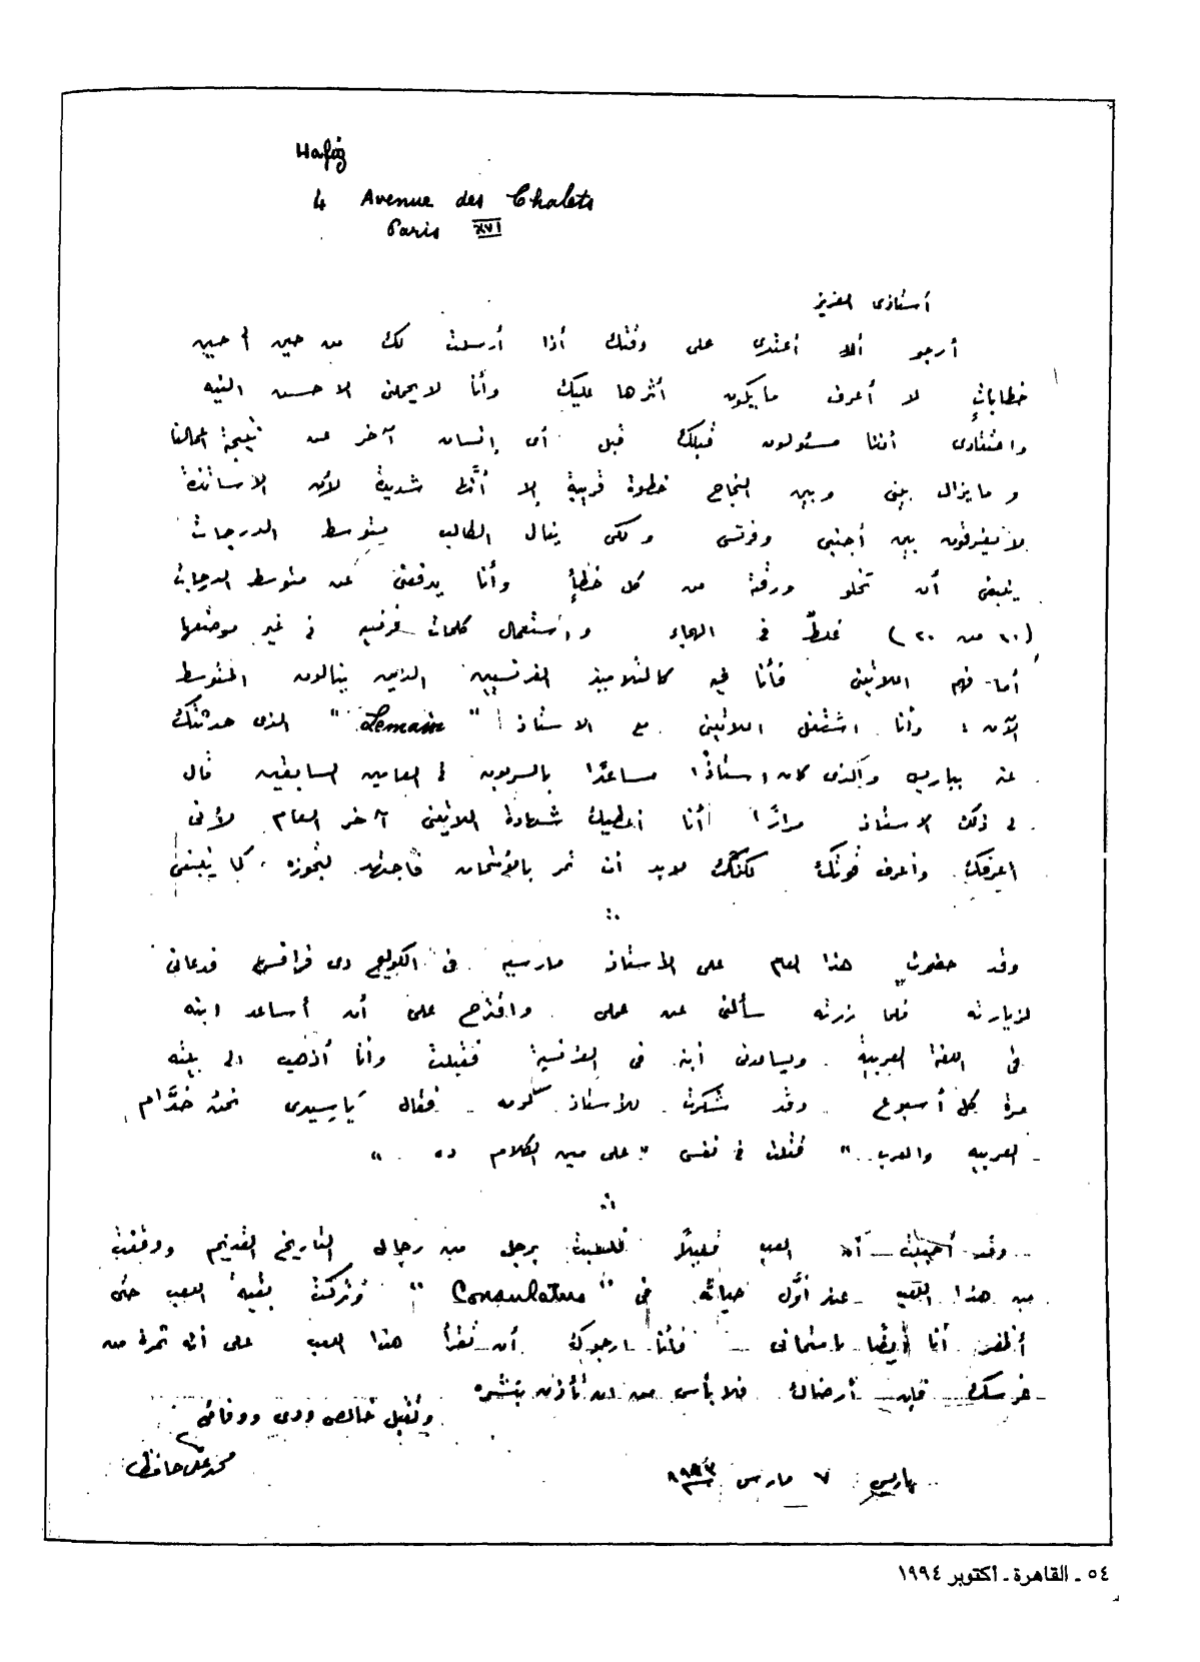 Hafiz
4 Avenue des Chalets
Paris XVI
أستاذى العزيز
أرجو ألا أعتدى على وقتك أذا أرسلت لك من حين لحين
خطاباتٍ لا أعرف مايكون أثرها عليك وأنا لايحملنى الا حسن النيه
واعتقادى أننا مسئولون قبلك قبل أى إنسان آخر عن نتيجة أعمالنا
و مايزال بينى وبين النجاح خطوة قريبة إلا أنَّها شديدة لأن الأساتذة
لا يفرقون بين أجنبى وفرنسى ولكى ينال الطالب متوسط الدرجات
ينبغى أن تخلو ورقته من كل خطأٍ وأنا يدفعنى عن متوسط الدرجات
(١٠ من ٢٠) غلطٌ فى الهجاء واستعمال كلمات فرنسيه فى غير موضعها
أما فهم اللاتينى فأنا فيه كالتلاميذ الفرنسيين الذين ينالون المتوسط
الآن ؛ وأنا اشتغل اللاتينى مع الاستاذ " Lemain " الذى حدثتك
عنه بباريس والذى كان استاذًا مساعدًا بالسربون فى العامين السابقين قال
لى ذلك الاستاذ مرارًا أنا أعطيك شهادة اللاتينى آخر العام لأنى
اعرفك وأعرف قوتك لكنك لابد أن تمر بالإمتحان فاجتهد لتجوزه كما ينبغى
وقد حضرت هذا العام على الأستاذ مارسيه فى الكوليج دى فرانس فدعانى
لزيارته فلما زرته سألنى عن عملى واقترح علىَّ أن أساعد ابنه
فى اللغة العربية ويساعدنى ابنه فى الفرنسية فقبلت وأنا أذهب الى بيته
مرة كل أسبوع وقد شكرت للأستاذ فقال يَاسيدى نحن خدَّام
العربيه والعرب " فقلت فى نفسى " على مين الكلام ده "
وقد أحببت أن العب قليلًا فلعبت برجل من رجال التاريخ القديم ووقفت
من هذا اللعب عند أوَّل حياته فى " Consulatus " وتركت بقية اللعب حتى
أظفر أنا أيضًا بامتحانى فأنا ارجوك أن تقرأ هذا اللعب على أنه ثمرة من
غرسك فإن أرضاك فلا بأس من ان تأذن بنشره
وتقبل خالص ودى ووفائى
محمد على حافظ
باريس ٧ مارس
٥٤ ـ القاهرة ـ أكتوبر ١٩٩٤